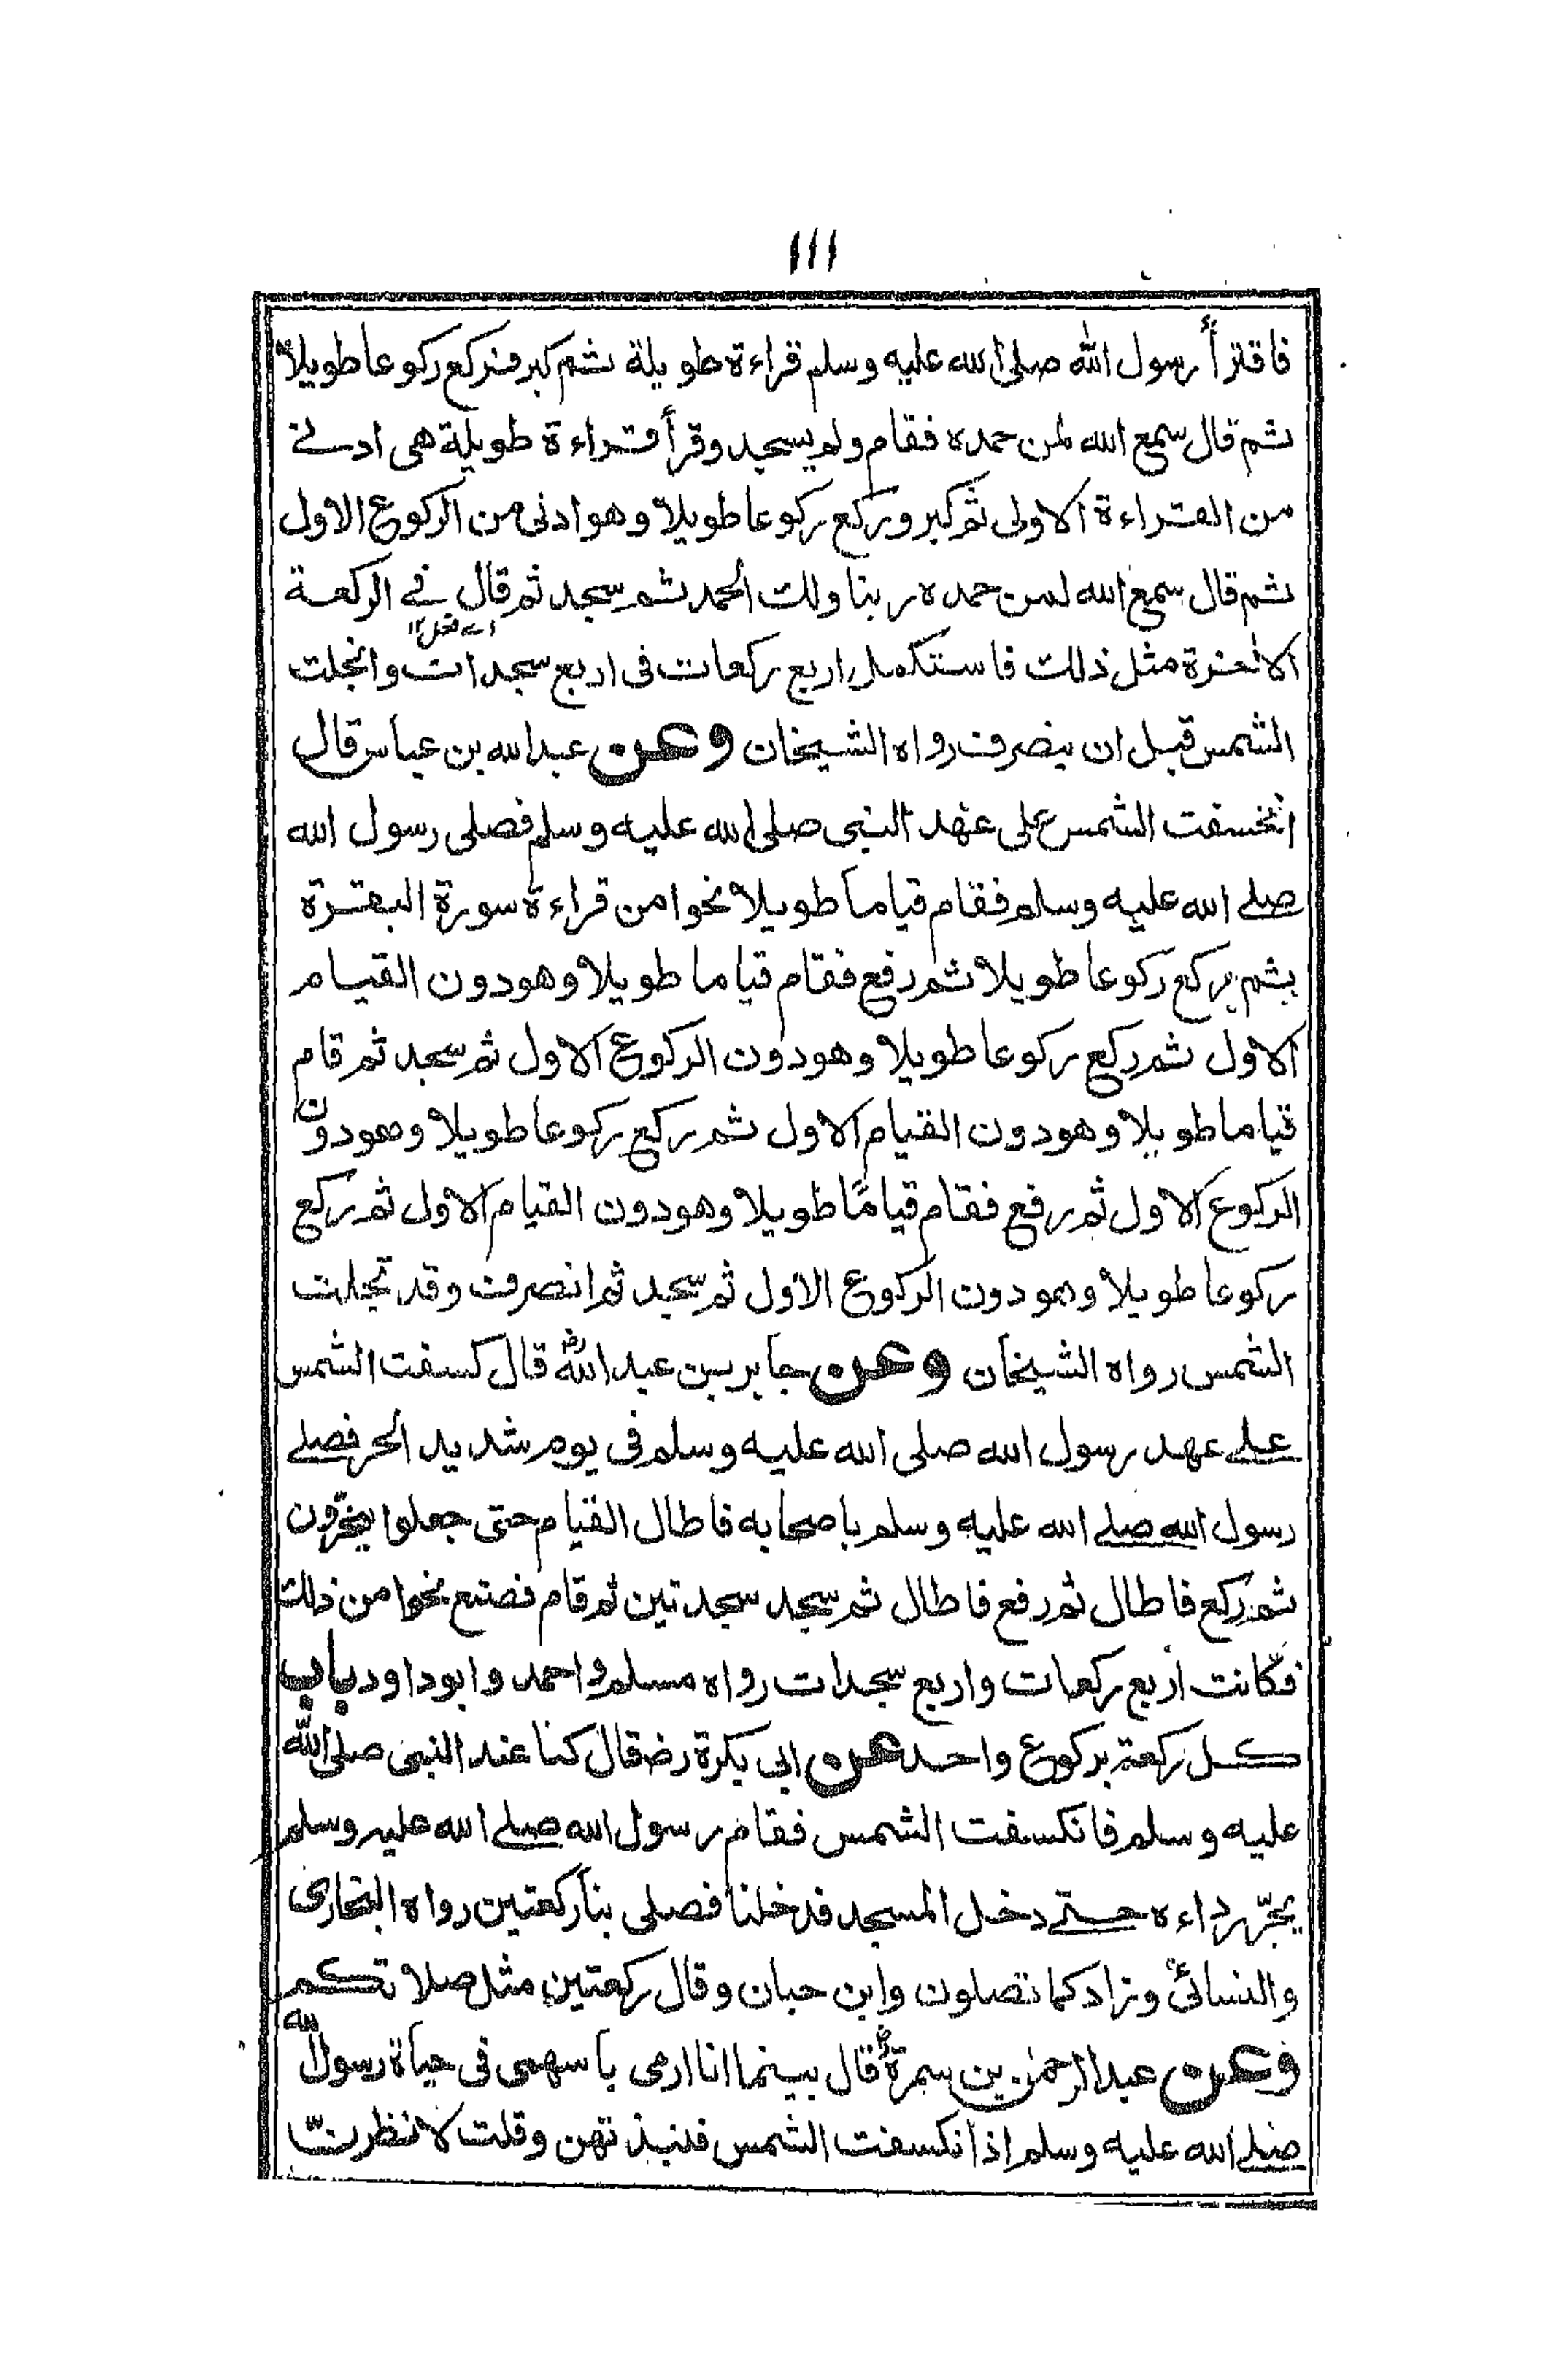 ١١١
فاقترأ رسول الله صلى الله عليه وسلم قراءة طويلة ثم كبر فركع ركوعا طويلا
ثم قال سمع الله لمن حمده فقام ولم يسجد وقرأ قراءة طويلة هى ادنے
من القراءة الاولى ثم كبر وركع ركوعا طويلا وهو ادنى من الركوع الاول
ثم قال سمع الله لمن حمده ربنا ولك الحمد ثم سجد ثم قال فے الركعة
اے فعل ١٢
الاخرة مثل ذلك فاستكمل اربع ركعات فى اربع سجدات وانجلت
الشمس قبل ان ينصرف رواه الشيخان وعن عبد الله بن عباس قال
انخسفت الشمس على عهد النبى صلى الله عليه وسلم فصلى رسول الله
صلے الله عليه وسلم فقام قياما طويلا نحوا من قراءة سورة البقرة
ثم ركع ركوعا طويلا ثم رفع فقام قياما طويلا وهو دون القيام
الاول ثم ركع ركوعا طويلا وهو دون الركوع الاول ثم سجد ثم قام
قياما طويلا وهو دون القيام الاول ثم ركع ركوعا طويلا وهو دون
الركوع الاول ثم رفع فقام قياما طويلا وهو دون القيام الاول ثم ركع
ركوعا طويلا وهو دون الركوع الاول ثم سجد ثم انصرف وقد تجلت
الشمس رواه الشيخان وعن جابر بن عبد اللهؓ قال كسفت الشمس
علے عهد رسول الله صلى الله عليه وسلم فى يوم شديد الحر فصلے
رسول الله صلے الله عليه وسلم باصحابه فاطال القيام حتى جعلوا يخرّون
ثم ركع فاطال ثم رفع فاطال ثم سجد سجدتين ثم قام فصنع نحوا من ذلك
فكانت اربع ركعات واربع سجدات رواه مسلم واحمد وابو داود باب
كل ركعة بركوع واحد عن ابى بكرة رض قال كنا عند النبى صلى الله
عليه وسلم فانكسفت الشمس فقام رسول الله صلے الله عليه وسلم
يجرّ رداءه حتے دخل المسجد فدخلنا فصلى بنا ركعتين رواه البخارى
والنسائى وزاد كما تصلون وابن حبان وقال ركعتين مثل صلاتكم
وعن عبد الرحمٰن بن سمرةؓ قال بينما انا ارمى باسهمى فى حياة رسول الله
صلے الله عليه وسلم اذ انكسفت الشمس فنبذتهن وقلت لانظرنّ